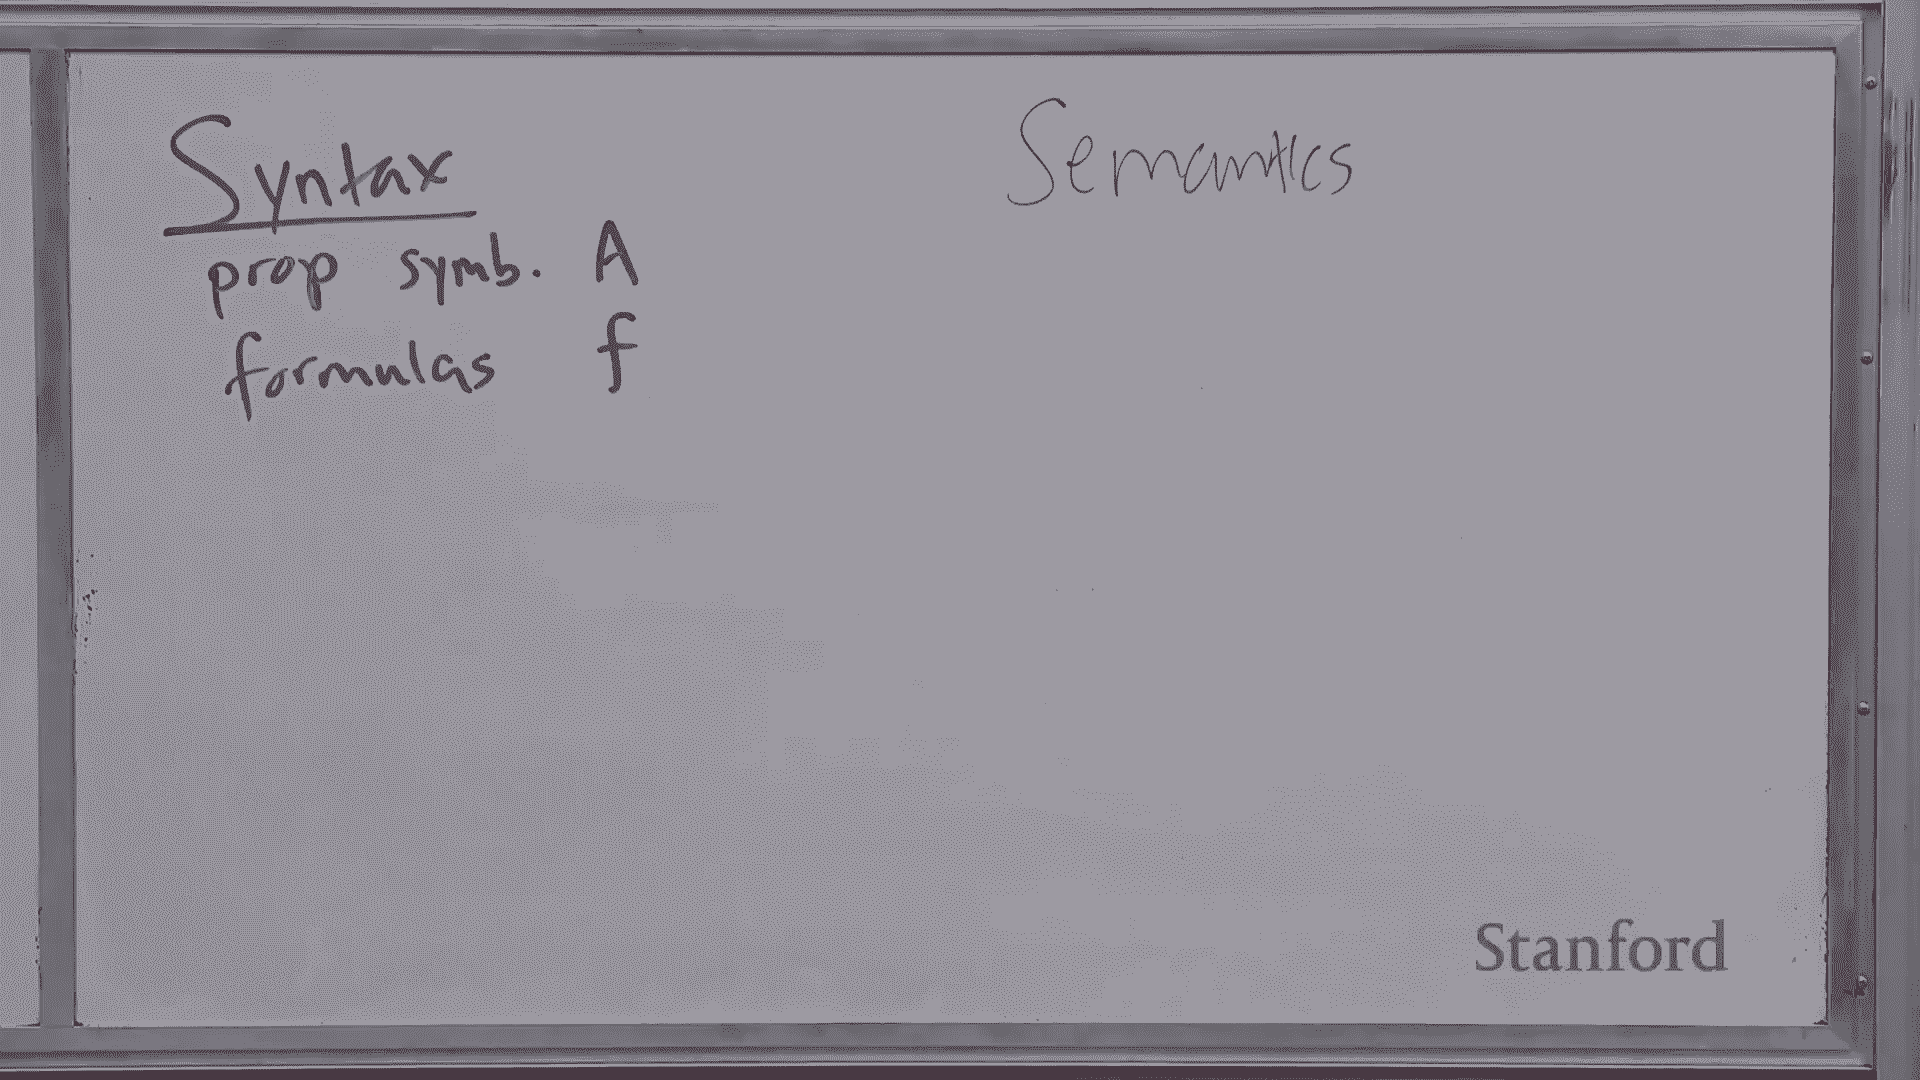 Syntax
prop symb. A
formulas f
Semantics
Stanford